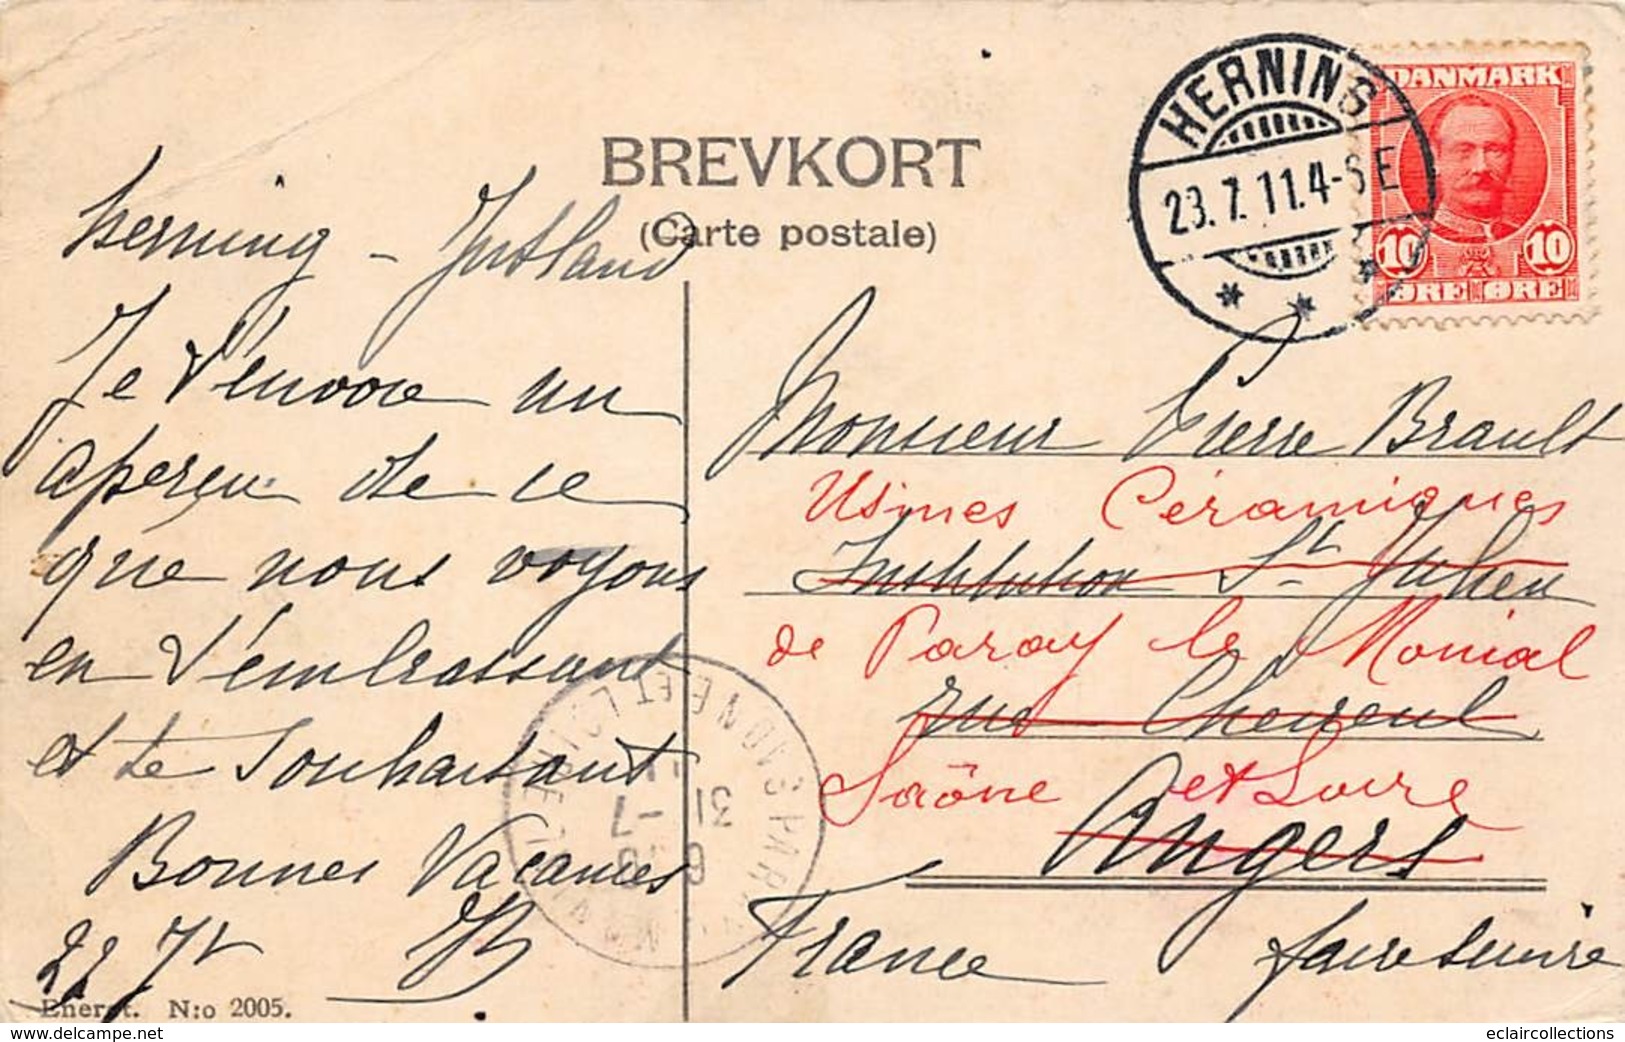 BREVKORT
(Carte postale)
HERNING
23.7.11.4-6 E
DANMARK
10 10
ØRE ØRE
Herning - Jutland
Je t'envoie un
aperçu de ce
que nous voyons
en t'embrassant
et te souhaitant
Bonnes Vacances
22 Jt JB
Monsieur Pierre Brault
Usines Céramiques
Institution St Julien
de Paray le Monial
rue Chevreul
Saône et Loire
Angers
France faire suivre
PARAY LE MONIAL
SAONE ET LOIRE
31 -7
Eneret. N:o 2005.
delcampe.net
eclaircollections